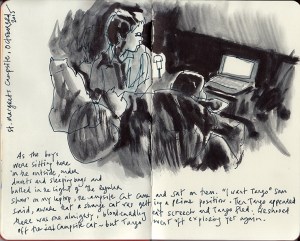 St. Margarets Campsite, October
2015
As the boys
were sitting here
on the outside, under
duvets and sleeping bags and
bathed in the light of "The Regular
Show" on my laptop, the campsite cat came and sat on them. "I want Tango" Sam
said, aware that a strange cat was
there was one almighty, bloodcurdling cat screech and Tango fled. We shooed
off the sad campsite cat – but Tango went off exploring yet again.
in a prime position. Then Tango appeared